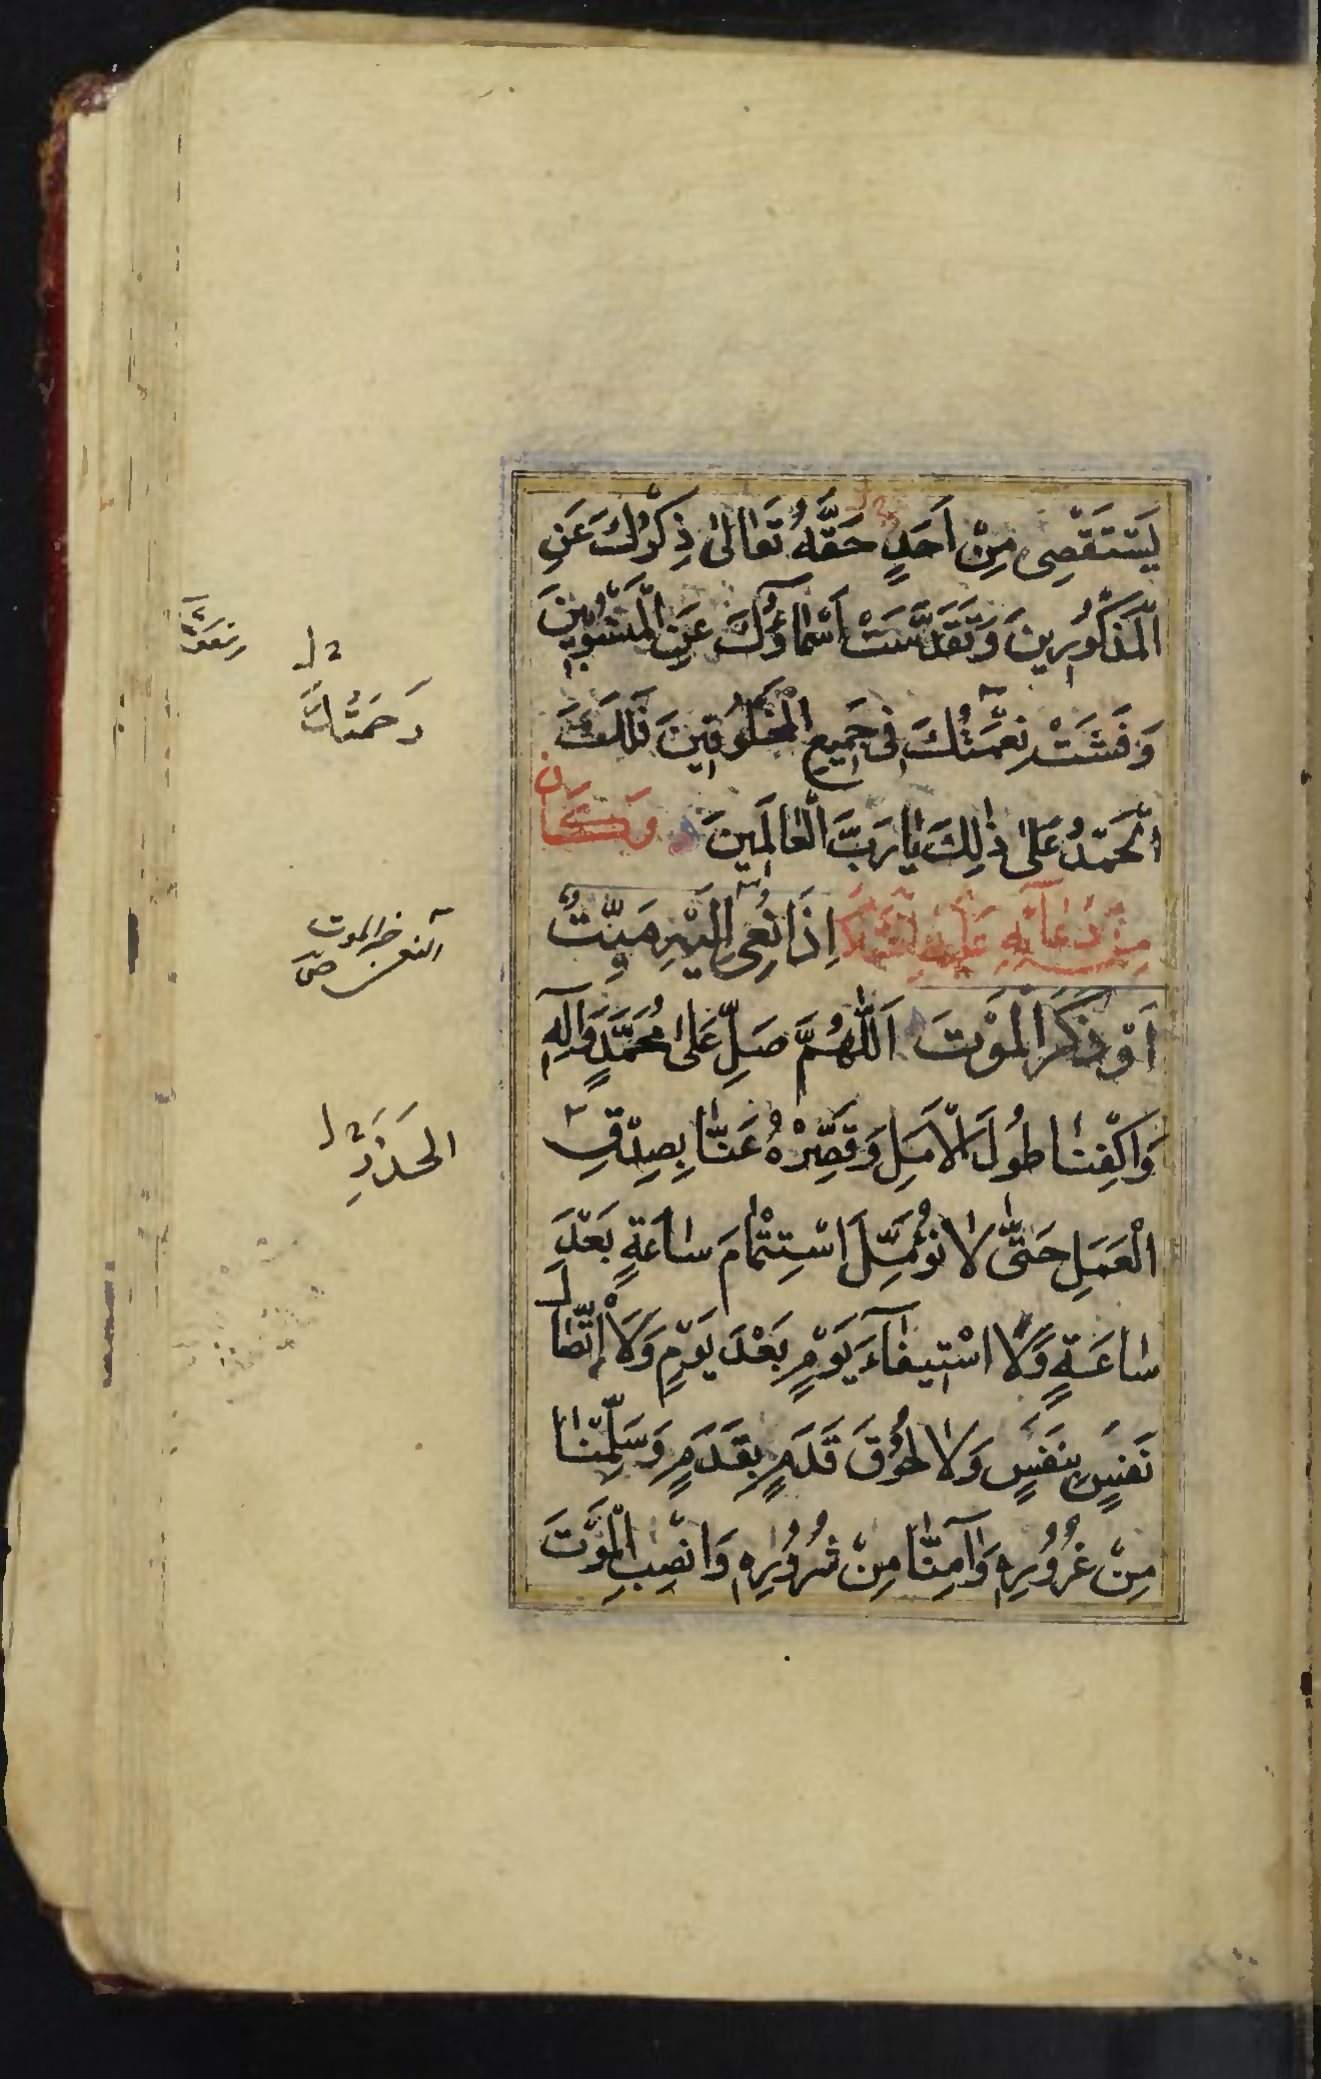 يَسْتَقْصِى مِنْ اَحَدٍ حَقَّهُ تَعَالىٰ ذِكْرُكَ عَنِ
الْمَذْكُورِينَ وَتَقَدَّسَتْ اَسْمَاؤُكَ عَنِ الْمَنْسُوبِينَ
وَفَشَتْ نِعْمَتُكَ فِى جَمِيعِ الْمَخْلُوقِينَ فَلَكَ
الْحَمْدُ عَلىٰ ذٰلِكَ يَا رَبَّ الْعَالَمِينَ وَكَانَ
مِنْ دُعَآئِهِ عَلَيْهِ السَّلَامُ اِذَا نُعِىَ اِلَيْهِ مَيِّتٌ
اَوْ ذَكَرَ الْمَوْتَ اَللّٰهُمَّ صَلِّ عَلىٰ مُحَمَّدٍ وَآلِهِ
وَاكْفِنَا طُولَ الْاَمَلِ وَقَصِّرْهُ عَنَّا بِصِدْقِ
الْعَمَلِ حَتّٰى لَا نُؤَمِّلَ اسْتِتْمَامَ سَاعَةٍ بَعْدَ
سَاعَةٍ وَلَا اسْتِيفَآءَ يَوْمٍ بَعْدَ يَوْمٍ وَلَا اتِّصَالَ
نَفَسٍ بِنَفَسٍ وَلَا لُحُوقَ قَدَمٍ بِقَدَمٍ وَسَلِّمْنَا
مِنْ غُرُورِهِ وَآمِنَّا مِنْ شُرُورِهِ وَانْصِبِ الْمَوْتَ
رَحْمَتُكَ